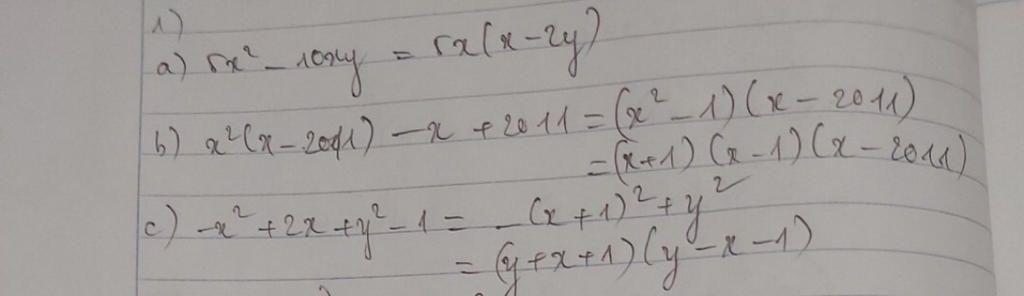 1)
a) 5x² - 10xy = 5x(x - 2y)
b) x²(x - 2011) - x + 2011 = (x² - 1)(x - 2011)
= (x+1)(x-1)(x - 2011)
c) -x² + 2x + y² - 1 = -(x+1)² + y²
= (y+x+1)(y-x-1)